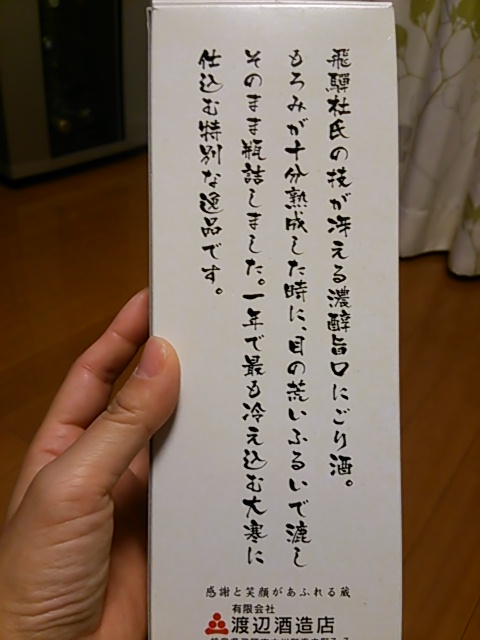 飛騨杜氏の技が冴える濃醇旨口にごり酒。
もろみが十分熟成した時に、目の荒いふるいで漉し
そのまま瓶詰しました。一年で最も冷え込む大寒に
仕込む特別な逸品です。
感謝と笑顔があふれる蔵
有限会社
渡辺酒造店